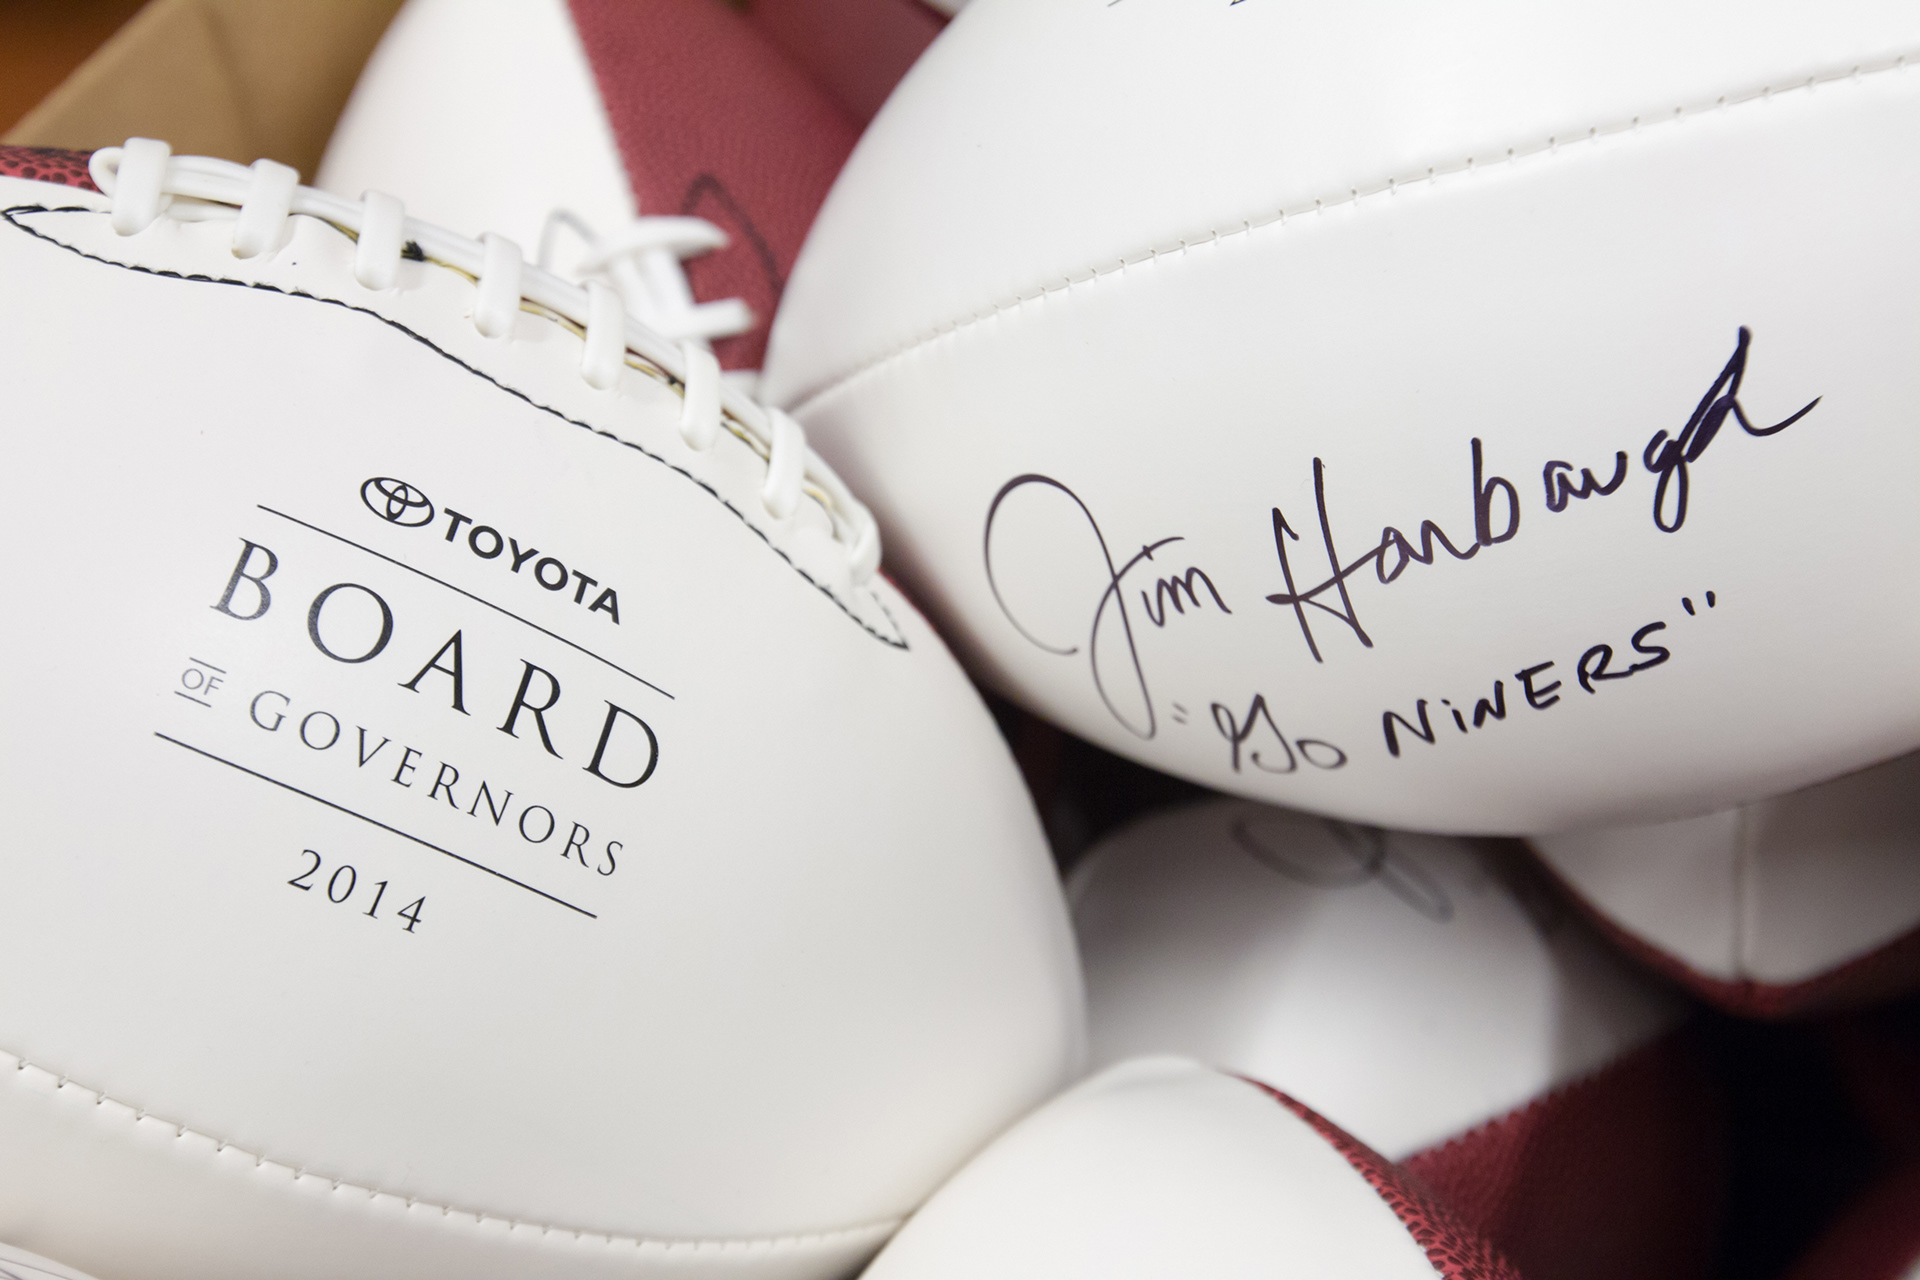 TOYOTA
BOARD
OF GOVERNORS
2014
Jim Harbaugh
"Go NiNERS"